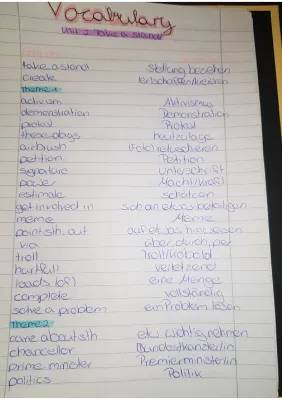 Vocabulary
Unit 2 Take a stand
take a stand Stellung beziehen
create erschaffen/kreieren
Theme 1
activism Aktivismus
demonstration Demonstration
protest Protest
these days heutzutage
airbrush (Foto) retuschieren
petition Petition
signature Unterschrift
power Macht/Kraft
estimate schätzen
get involved in sich an etwas beteiligen
meme Meme
point sth. out auf etwas hinweisen
via über, durch, per
troll Troll/Kobold
hurtful verletzend
loads (of) eine Menge
complete vollständig
solve a problem ein Problem lösen
Theme 2
care about sth etw. wichtig nehmen
chancellor Bundeskanzler/in
prime minister Premierminister/in
politics Politik